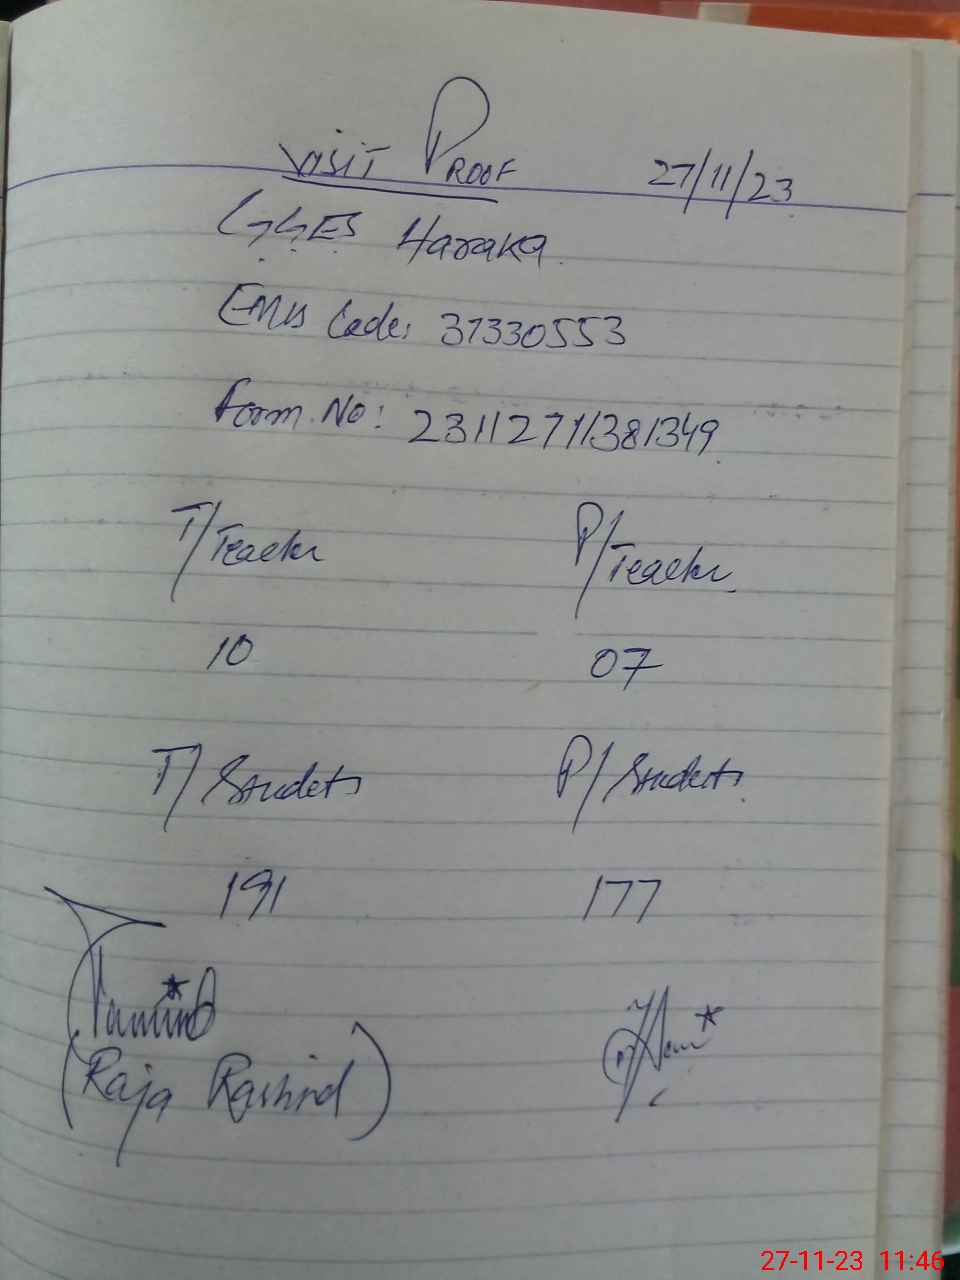 VISIT PROOF 27/11/23
GGES Haraka
EMIS Code: 37330553
Form. No: 23112711381349
T/Teacher P/Teacher
10 07
T/Students P/Students
191 177
(Raja Rashid)
27-11-23 11:46